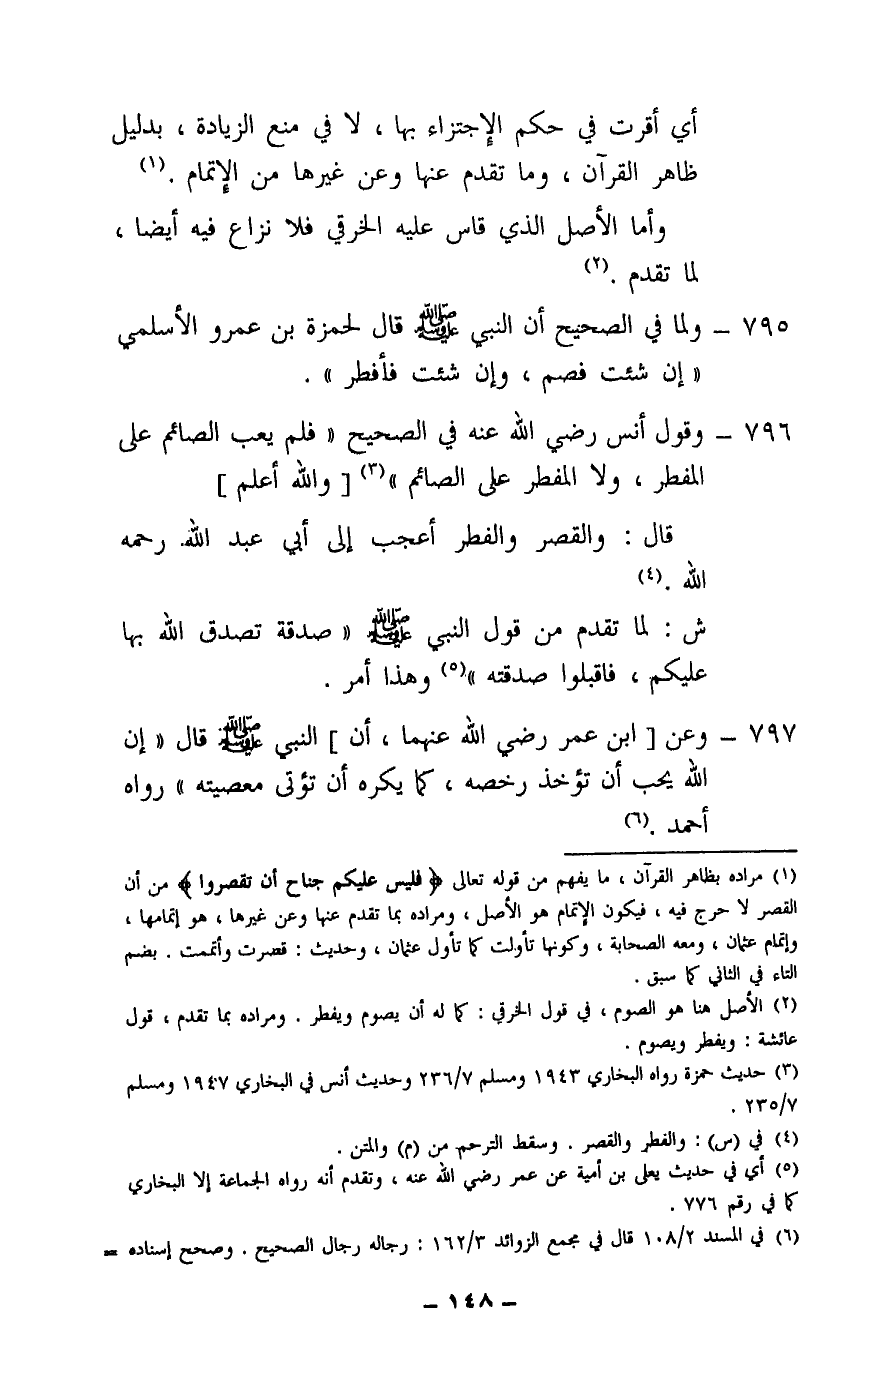 أي أقرت في حكم الإجتزاء بها ، لا في منع الزيادة ، بدليل
ظاهر القرآن ، وما تقدم عنها وعن غيرها من الإتمام .(١)
وأما الأصل الذي قاس عليه الخرقي فلا نزاع فيه أيضا ،
لما تقدم .(٢)
٧٩٥ – ولما في الصحيح أن النبي ﷺ قال لحمزة بن عمرو الأسلمي
« إن شئت فصم ، وإن شئت فأفطر » .
٧٩٦ – وقول أنس رضي الله عنه في الصحيح « فلم يعب الصائم على
المفطر ، ولا المفطر على الصائم »(٣) [ والله أعلم ]
قال : والقصر والفطر أعجب إلى أبي عبد الله. رحمه
الله .(٤)
ش : لما تقدم من قول النبي ﷺ « صدقة تصدق الله بها
عليكم ، فاقبلوا صدقته »(٥) وهذا أمر .
٧٩٧ – وعن [ ابن عمر رضي الله عنهما ، أن ] النبي ﷺ قال « إن
الله يحب أن تؤخذ رخصه ، كما يكره أن تؤتى معصيته » رواه
أحمد .(٦)
(١) مراده بظاهر القرآن ، ما يفهم من قوله تعالى ﴿ فليس عليكم جناح أن تقصروا ﴾ من أن
القصر لا حرج فيه ، فيكون الإتمام هو الأصل ، ومراده بما تقدم عنها وعن غيرها ، هو إتمامها ،
وإتمام عثمان ، ومعه الصحابة ، وكونها تأولت كما تأول عثمان ، وحديث : قصرت وأتممت . بضم
التاء في الثاني كما سبق .
(٢) الأصل هنا هو الصوم ، في قول الخرقي : كما له أن يصوم ويفطر . ومراده بما تقدم ، قول
عائشة : ويفطر ويصوم .
(٣) حديث حمزة رواه البخاري ١٩٤٣ ومسلم ٢٣٦/٧ وحديث أنس في البخاري ١٩٤٧ ومسلم
٢٣٥/٧ .
(٤) في (س) : والفطر والقصر . وسقط الترحم من (م) والمتن .
(٥) أي في حديث يعلى بن أمية عن عمر رضي الله عنه ، وتقدم أنه رواه الجماعة إلا البخاري
كما في رقم ٧٧٦ .
(٦) في المسند ١٠٨/٢ قال في مجمع الزوائد ١٦٢/٣ : رجاله رجال الصحيح . وصحح إسناده =
– ١٤٨ –